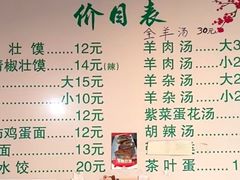 价目表
全羊汤 30元
壮馍 12元
青椒壮馍 14元(辣)
大15元
小10元
鸡蛋面 12元
面 13元
水饺 20元
羊肉汤 大3
羊肉汤 小
羊杂汤 大
羊杂汤 小
紫菜蛋花汤
胡辣汤
茶叶蛋 1